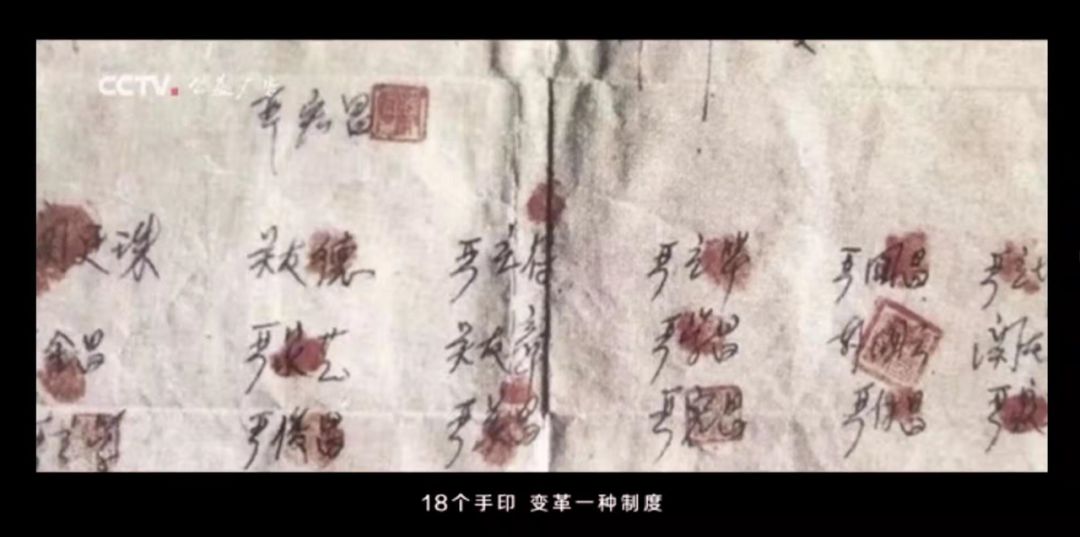 CCTV 公益广告
严宏昌
珠 关友德 严立符 严立华 严国昌 严立
金昌 严家芝 关友章 严学昌 韩国云
严俊昌 严美昌 严宏昌 严付昌 严
18个手印 变革一种制度